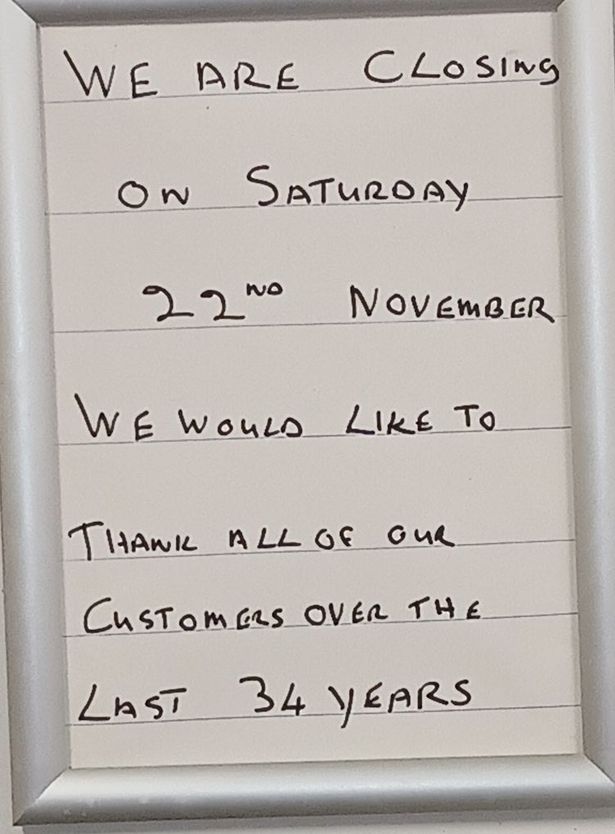 WE ARE CLOSING
ON SATURDAY
22ND NOVEMBER
WE WOULD LIKE TO
THANK ALL OF OUR
CUSTOMERS OVER THE
LAST 34 YEARS